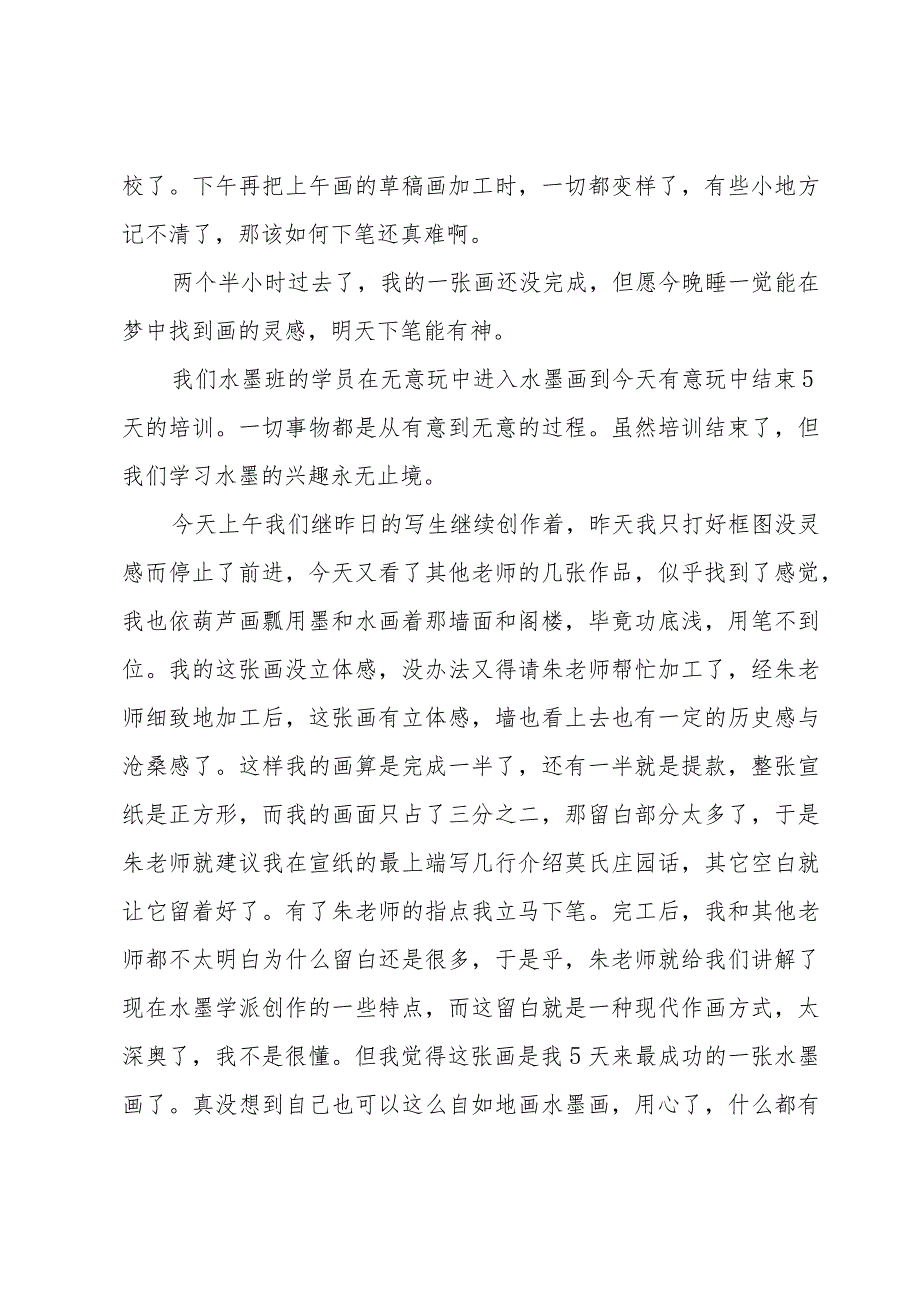 校了。下午再把上午画的草稿画加工时，一切都变样了，有些小地方
记不清了，那该如何下笔还真难啊。
两个半小时过去了，我的一张画还没完成，但愿今晚睡一觉能在
梦中找到画的灵感，明天下笔能有神。
我们水墨班的学员在无意玩中进入水墨画到今天有意玩中结束5
天的培训。一切事物都是从有意到无意的过程。虽然培训结束了，但
我们学习水墨的兴趣永无止境。
今天上午我们继昨日的写生继续创作着，昨天我只打好框图没灵
感而停止了前进，今天又看了其他老师的几张作品，似乎找到了感觉，
我也依葫芦画瓢用墨和水画着那墙面和阁楼，毕竟功底浅，用笔不到
位。我的这张画没立体感，没办法又得请朱老师帮忙加工了，经朱老
师细致地加工后，这张画有立体感，墙也看上去也有一定的历史感与
沧桑感了。这样我的画算是完成一半了，还有一半就是提款，整张宣
纸是正方形，而我的画面只占了三分之二，那留白部分太多了，于是
朱老师就建议我在宣纸的最上端写几行介绍莫氏庄园话，其它空白就
让它留着好了。有了朱老师的指点我立马下笔。完工后，我和其他老
师都不太明白为什么留白还是很多，于是乎，朱老师就给我们讲解了
现在水墨学派创作的一些特点，而这留白就是一种现代作画方式，太
深奥了，我不是很懂。但我觉得这张画是我5天来最成功的一张水墨
画了。真没想到自己也可以这么自如地画水墨画，用心了，什么都有